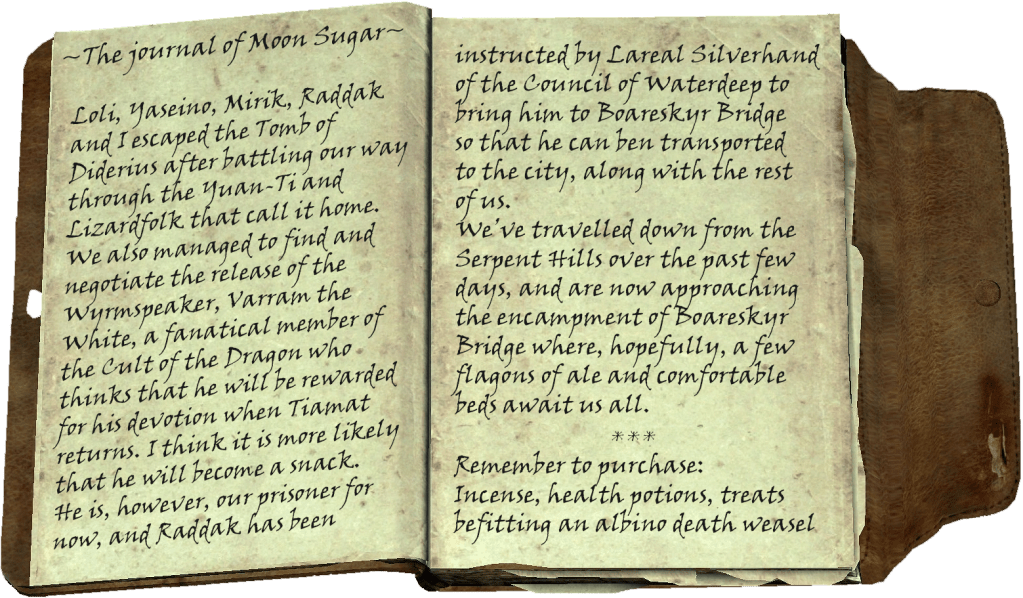 ~The journal of Moon Sugar~
Loli, Yaseino, Mirik, Raddak
and I escaped the Tomb of
Diderius after battling our way
through the Yuan-Ti and
Lizardfolk that call it home.
We also managed to find and
negotiate the release of the
Wyrmspeaker, Varram the
White, a fanatical member of
the Cult of the Dragon who
thinks that he will be rewarded
for his devotion when Tiamat
returns. I think it is more likely
that he will become a snack.
He is, however, our prisoner for
now, and Raddak has been
instructed by Lareal Silverhand
of the Council of Waterdeep to
bring him to Boareskyr Bridge
so that he can ben transported
to the city, along with the rest
of us.
We've travelled down from the
Serpent Hills over the past few
days, and are now approaching
the encampment of Boareskyr
Bridge where, hopefully, a few
flagons of ale and comfortable
beds await us all.
***
Remember to purchase:
Incense, health potions, treats
befitting an albino death weasel